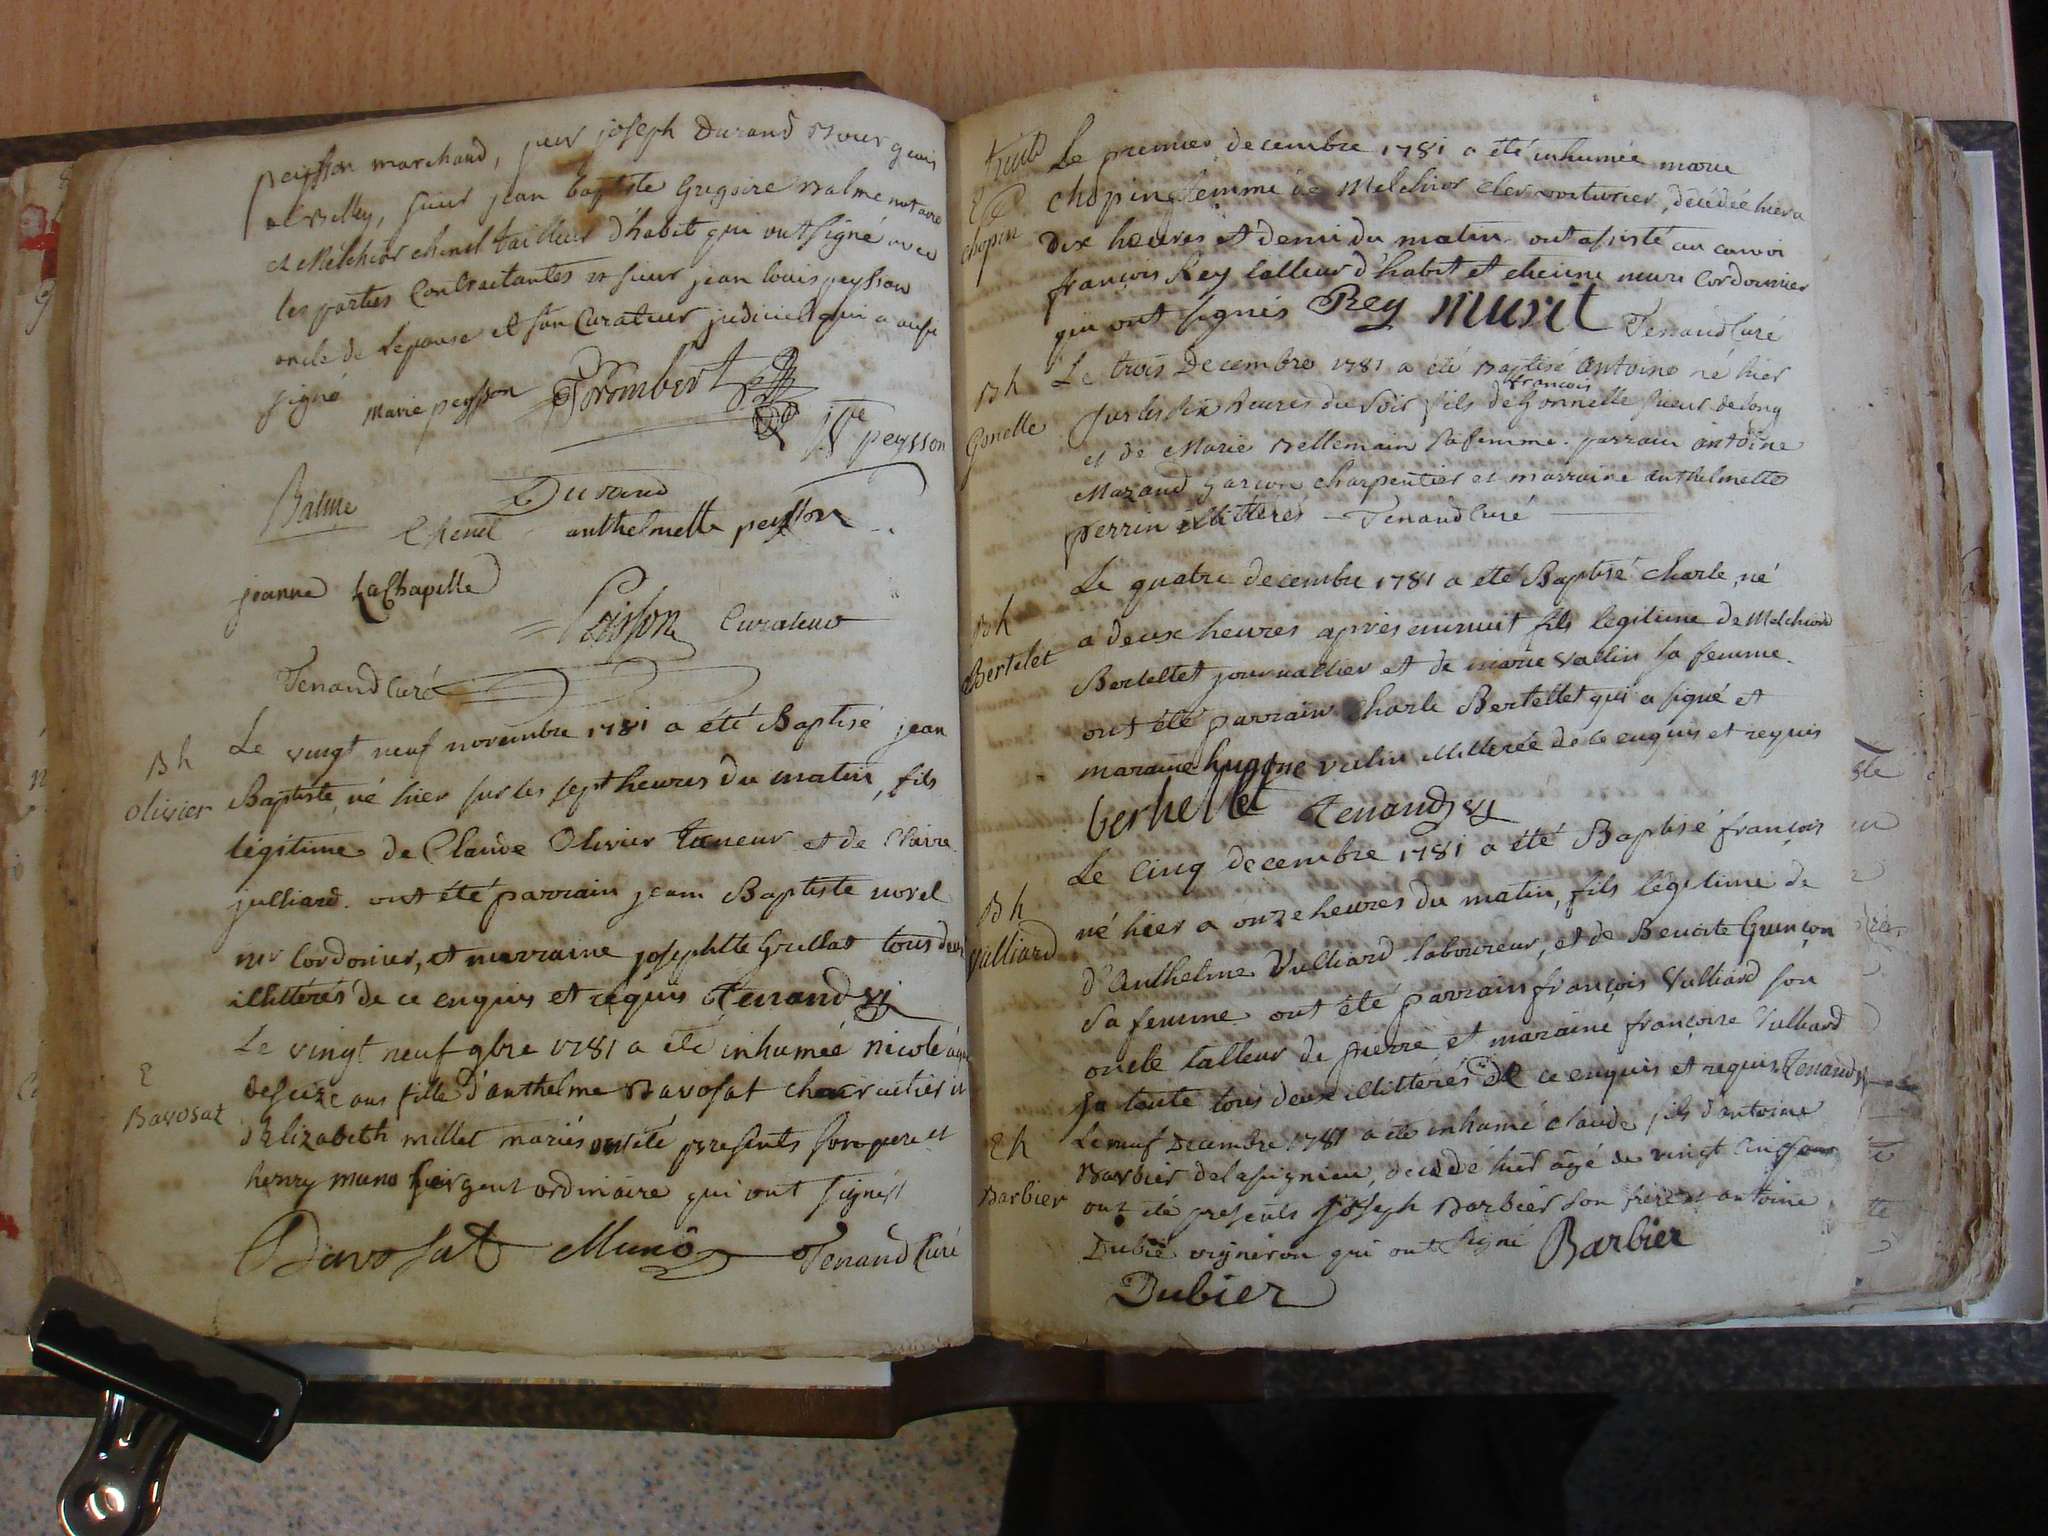 peysson marchand, sieur joseph Durand Bourgeois
de Belley, sieur jean baptiste Gregoire Balme notaire
et Melchior chenel tailleur d'habit qui ont signé avec
les parties Contractantes et sieur jean louis peysson
oncle de lepouse et son Curateur judiciel qui a aussi
signé
marie peysson Trombert
peysson
Balme Durand
Chenel anthelmette peysson
jeanne LaChapelle
Peisson Curateur
Tenand Curé
Bh
Olivier
Le vingt neuf novembre 1781 a été Baptisé jean
Baptiste, né hier sur les sept heures du matin, fils
légitime de Claude Olivier taneur et de Claire
julliard. ont été parrain jean Baptiste novel
Cordonier, et marraine josephtte Grillat tous deux
illitterés de ce enquis et requis Tenand
E
Bavosat
Le vingt neuf 9bre 1781 a été inhumée nicole agée
de seize ans fille d'anthelme Bavosat charcutier et
d'Elizabeth millet mariés ont été presents son pere et
henry muno sergent ordinaire qui ont signés
Bavosat Muno Tenand Curé
E
chopin
Le premier decembre 1781 a été inhumée marie
chopin femme de Melchior clerc voiturier, décédée hier a
dix heures et demi du matin. ont assisté au convoi
françois Rey tailleur d'habit et etienne mure Cordonnier
qui ont signés Rey Murit Tenand Curé
Bh
Gonelle
Le trois Decembre 1781 a été Baptisé antoine né hier
sur les six heures du soir fils de françois Gonnette sieur de long
et de Marie Bellemain sa femme. parrain antoine
Mazand garçon charpentier et marraine anthelmette
perrin illitterés Tenand Curé
Bh
Bertelet
Le quatre decembre 1781 a été Baptisé Charle, né
a deux heures apres minuit fils legitime de Melchiord
Bertellet journallier et de marie vallin sa femme.
ont été parrain Charle Bertellet qui a signé et
maraine hugone vulin illiterée de ce enquis et requis
berhellet Tenand
Bh
Vulliard
Le Cinq decembre 1781 a été Baptisé françois
né hier a onze heures du matin, fils légitime de
d'Anthelme Vulliard laboureur, et de Benoite Guinçon
sa femme. ont été parrain françois Vulliard son
oncle tailleur de pierre et maraine francoise Vulliard
sa tante tous deux illitterés de ce enquis et requis Tenand
Eh
Barbier
Le neuf Decembre 1781 a été inhumé claude fils d'antoine
Barbier, decedé hier âgé de vingt Cinq
ont été presents joseph Barbier son frere et antoine
Dubié vigneron qui ont signé Barbier
Dubier